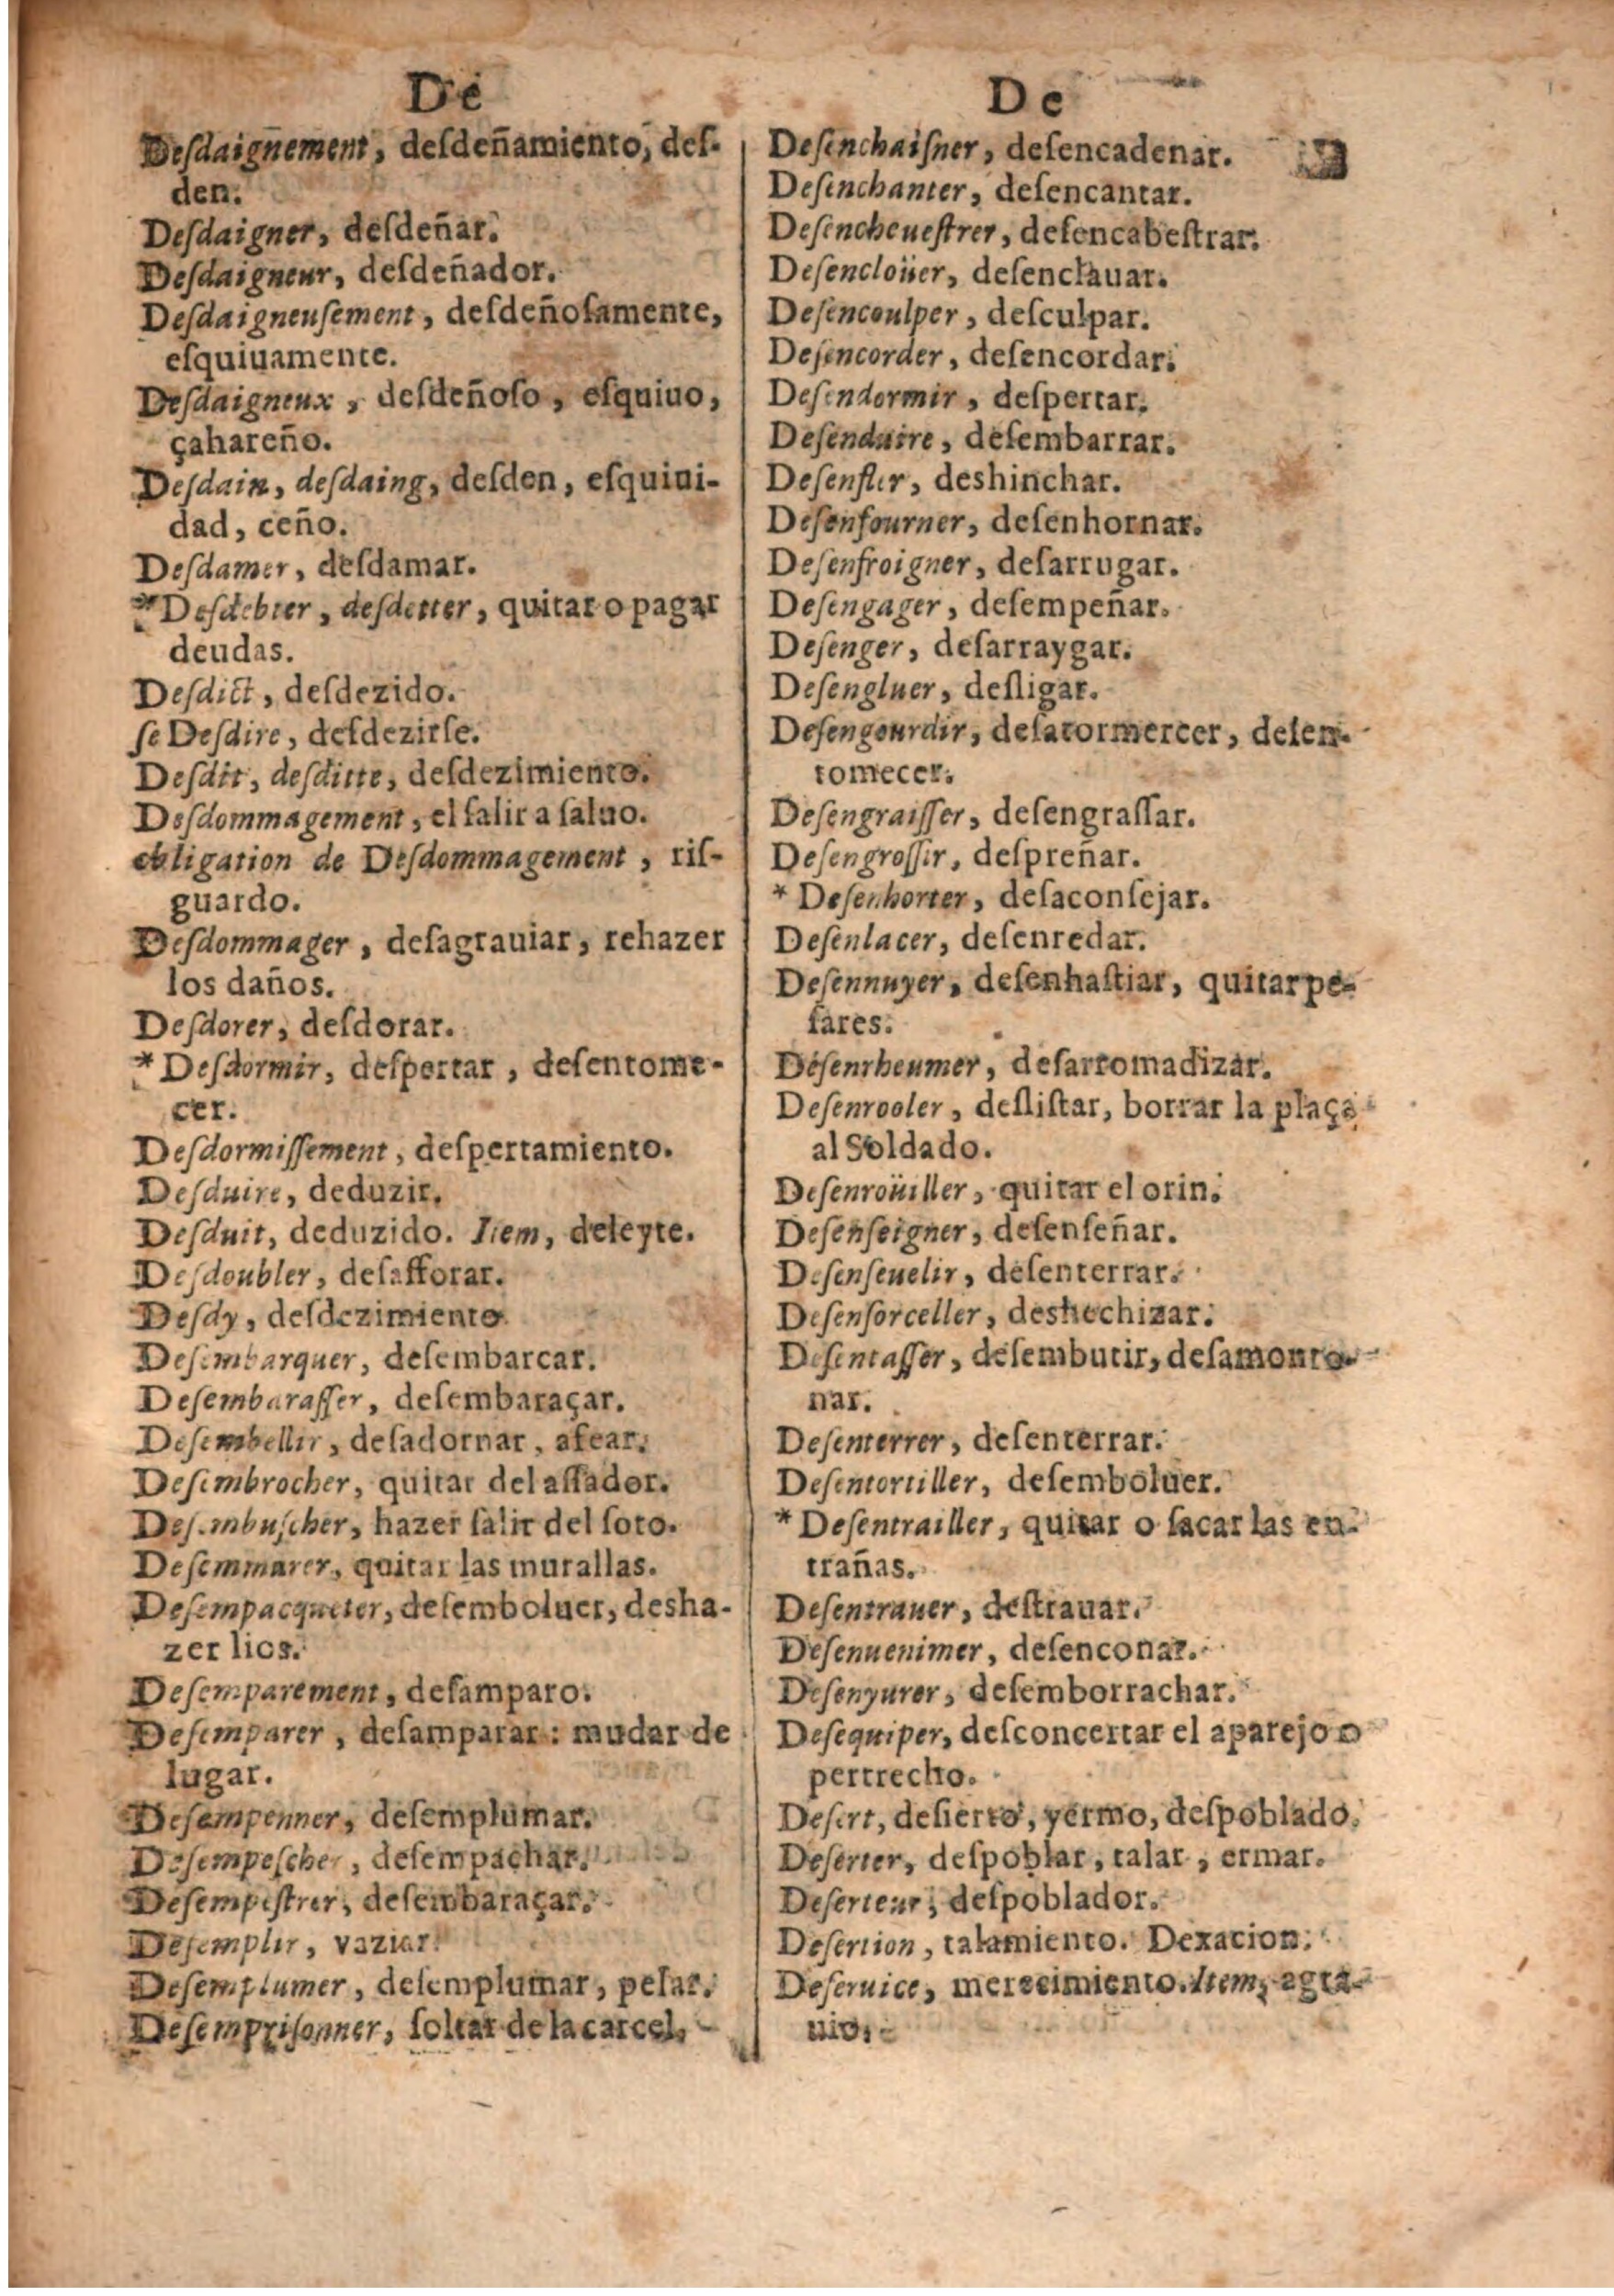 De
Deſdaignement, deſdeñamiento, deſ-
den.
Deſdaigner, deſdeñar.
Deſdaigneur, deſdeñador.
Deſdaigneuſement, deſdeñoſamente,
eſquiuamente.
Deſdaigneux, deſdeñoſo, eſquiuo,
çahareño.
Deſdain, deſdaing, deſden, eſquiui-
dad, ceño.
Deſdamer, deſdamar.
*Deſdebter, deſdetter, quitar o pagar
deudas.
Deſdict, deſdezido.
ſe Deſdire, deſdezirſe.
Deſdit, deſditte, deſdezimiento.
Deſdommagement, el ſalir a ſaluo.
obligation de Deſdommagement, riſ-
guardo.
Deſdommager, deſagrauiar, rehazer
los daños.
Deſdorer, deſdorar.
*Deſdormir, deſpertar, deſentome-
cer.
Deſdormiſſement, deſpertamiento.
Deſduire, deduzir.
Deſduit, deduzido. Item, deleyte.
Deſdoubler, deſafforar.
Deſdy, deſdezimiento.
Deſembarquer, deſembarcar.
Deſembaraſſer, deſembaraçar.
Deſembellir, deſadornar, afear.
Deſembrocher, quitar del aſſador.
Deſembuſcher, hazer ſalir del ſoto.
Deſemmurer, quitar las murallas.
Deſempacqueter, deſemboluer, desha-
zer lios.
Deſemparement, deſamparo.
Deſemparer, deſamparar: mudar de
lugar.
Deſempenner, deſemplumar.
Deſempeſcher, deſempachar.
Deſempeſtrer, deſembaraçar.
Deſemplir, vaziar.
Deſemplumer, deſemplumar, pelar.
Deſempriſonner, ſoltar de la carcel.
De
Deſenchaiſner, deſencadenar.
Deſenchanter, deſencantar.
Deſencheueſtrer, deſencabeſtrar.
Deſencloüer, deſenclauar.
Deſencoulper, deſculpar.
Deſencorder, deſencordar.
Deſendormir, deſpertar.
Deſenduire, deſembarrar.
Deſenfler, deshinchar.
Deſenfourner, deſenhornar.
Deſenfroigner, deſarrugar.
Deſengager, deſempeñar.
Deſenger, deſarraygar.
Deſengluer, deſligar.
Deſengourdir, deſatormecer, deſen-
tomecer.
Deſengraiſſer, deſengraſſar.
Deſengroſſir, deſpreñar.
* Deſenhorter, deſaconſejar.
Deſenlacer, deſenredar.
Deſennuyer, deſenhaſtiar, quitar pe-
ſares.
Deſenrheumer, deſarromadizar.
Deſenrooler, deſliſtar, borrar la plaça
al Soldado.
Deſenroüiller, quitar el orin.
Deſenſeigner, deſenſeñar.
Deſenſeuelir, deſenterrar.
Deſenſorceller, deshechizar.
Deſentaſſer, deſembutir, deſamonto-
nar.
Deſenterrer, deſenterrar.
Deſentortiller, deſemboluer.
*Deſentrailler, quitar o ſacar las en-
trañas.
Deſentrauer, deſtrauar.
Deſenuenimer, deſenconar.
Deſenyurer, deſemborrachar.
Deſequiper, deſconcertar el aparejo o
pertrecho.
Deſert, deſierto, yermo, deſpoblado.
Deſerter, deſpoblar, talar, ermar.
Deſerteur, deſpoblador.
Deſertion, talamiento. Dexacion.
Deſeruice, merecimiento. Item, agra-
uio.